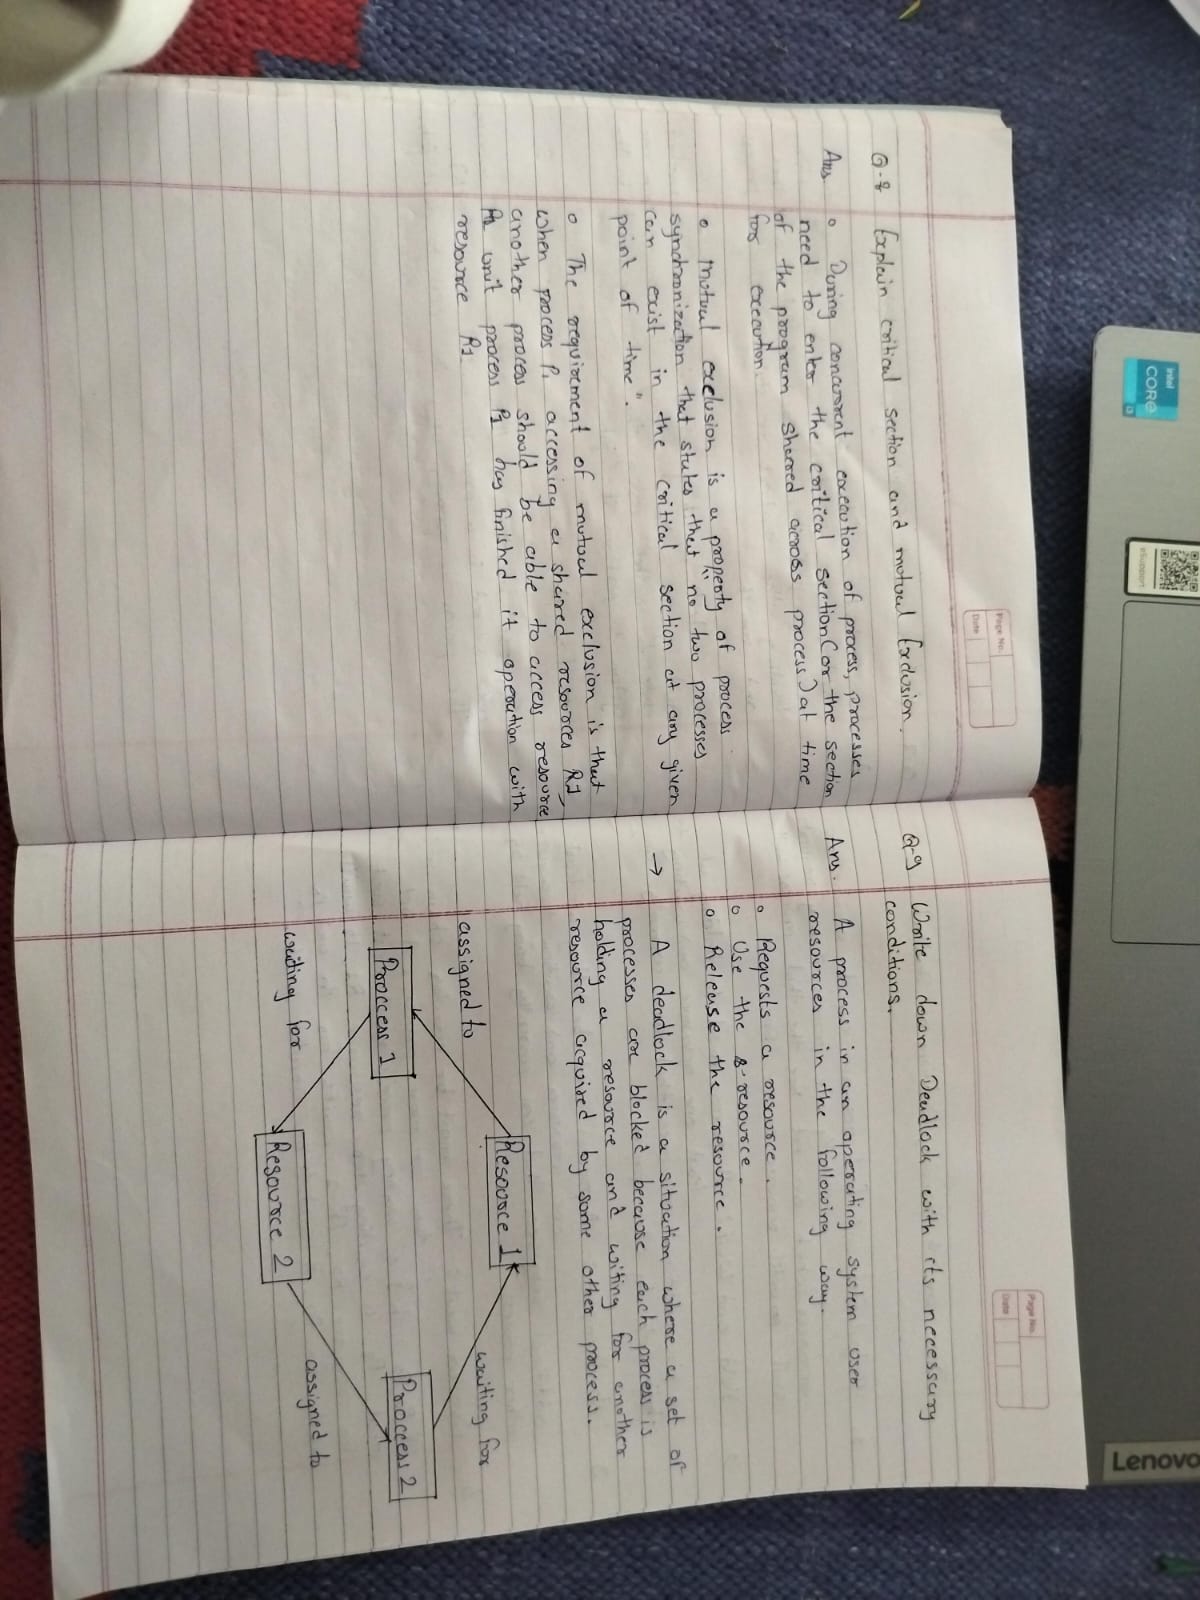 intel
CORE
i3
eSupport
Lenovo
Page No.
Date
Q-8 Explain critical section and mutual Exclusion.
Ans o During concurrent execution of process, processes
need to enter the critical section (or the section
of the program shared across process) at time
for execution.
o Mutual exclusion is a property of process
synchronization that states that "no two processes
can exist in the critical section at any given
point of time".
o The requirement of mutual exclusion is that
when process P1 accessing a shared resources R1,
another process should be able to access resource
R1 unit process P1 has finished it operation with
resource R1
Page No.
Date
Q-9 Write down Deadlock with its necessary
conditions.
Ans. A process in an operating system user
resources in the following way.
o Requests a resource.
o Use the resource.
o Release the resource.
→ A deadlock is a situation where a set of
processes are blocked because each process is
holding a resource and witing for another
resource acquired by some other process.
Resource 1
assigned to
waiting for
Proccess 1
Proccess 2
waiting for
assigned to
Resource 2